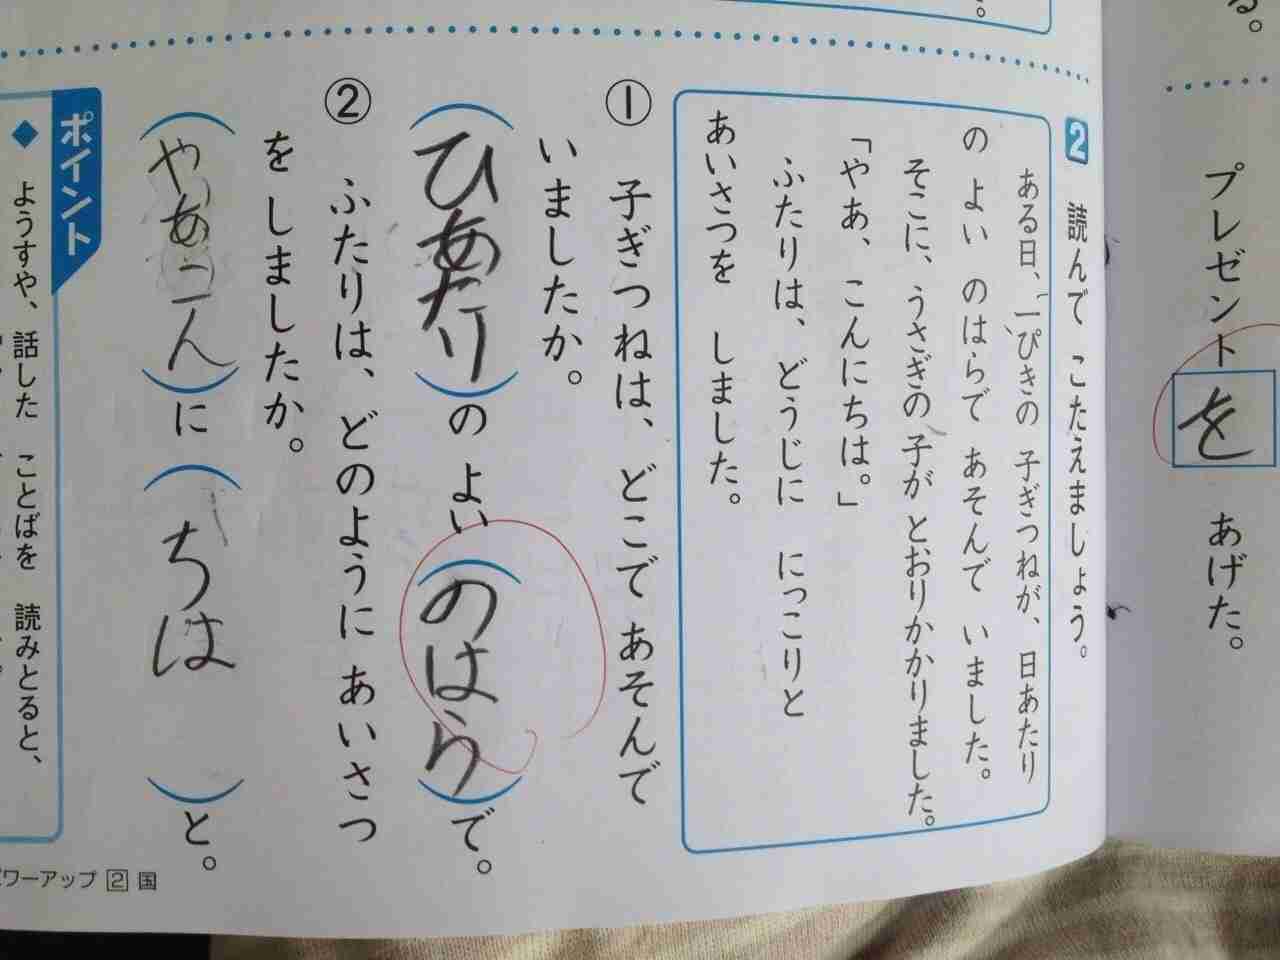 る。
プレゼントを あげた。
2 読んで こたえましょう。
ある日、一ぴきの 子ぎつねが、日あたり
の よい のはらで あそんで いました。
そこに、うさぎの 子が とおりかかりました。
「やあ、こんにちは。」
ふたりは、どうじに にっこりと
あいさつを しました。
① 子ぎつねは、どこで あそんで
いましたか。
(ひあたり)の よい (のはら)で。
② ふたりは、どのように あいさつ
を しましたか。
(やあこん)に (ちは)と。
ポイント
◆ ようすや、話した ことばを 読みとると、
ワーアップ 2 国